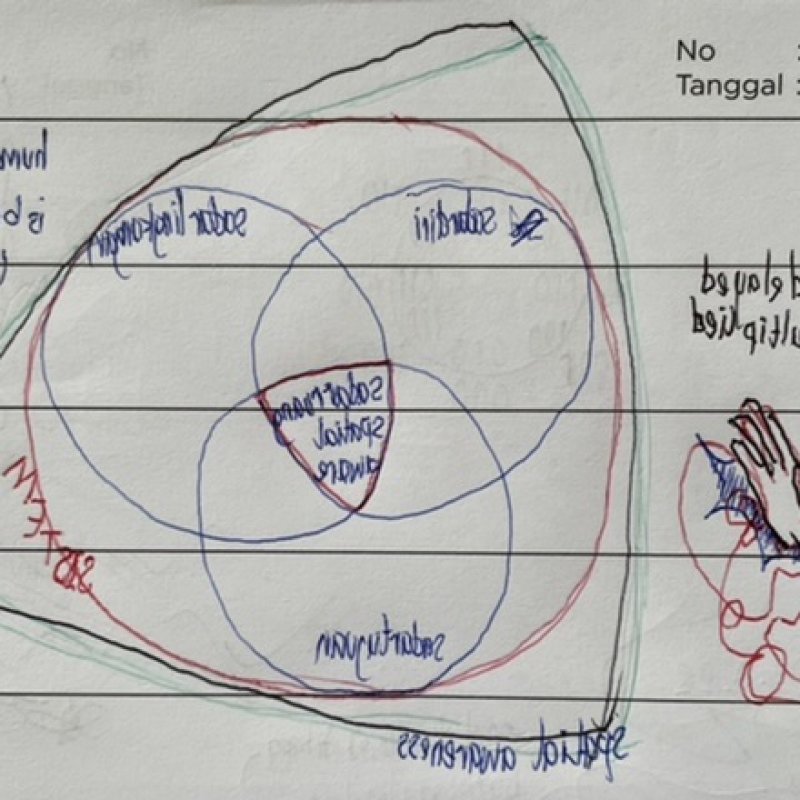 No :
Tanggal :
hum
is b
sadar lingkungan
sadar diri
delayed
multiplied
sadar ruang
spatial
aware
SISTEM
sadar tujuan
spatial awareness